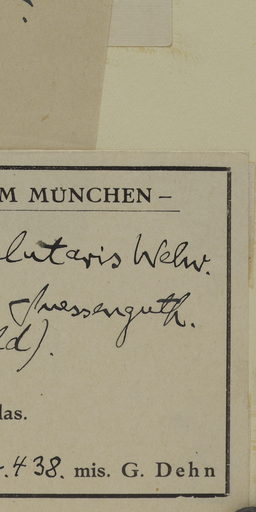 M MÜNCHEN –
lutaris Welw.
Suessenguth.
ld).
las.
r. 438. mis. G. Dehn